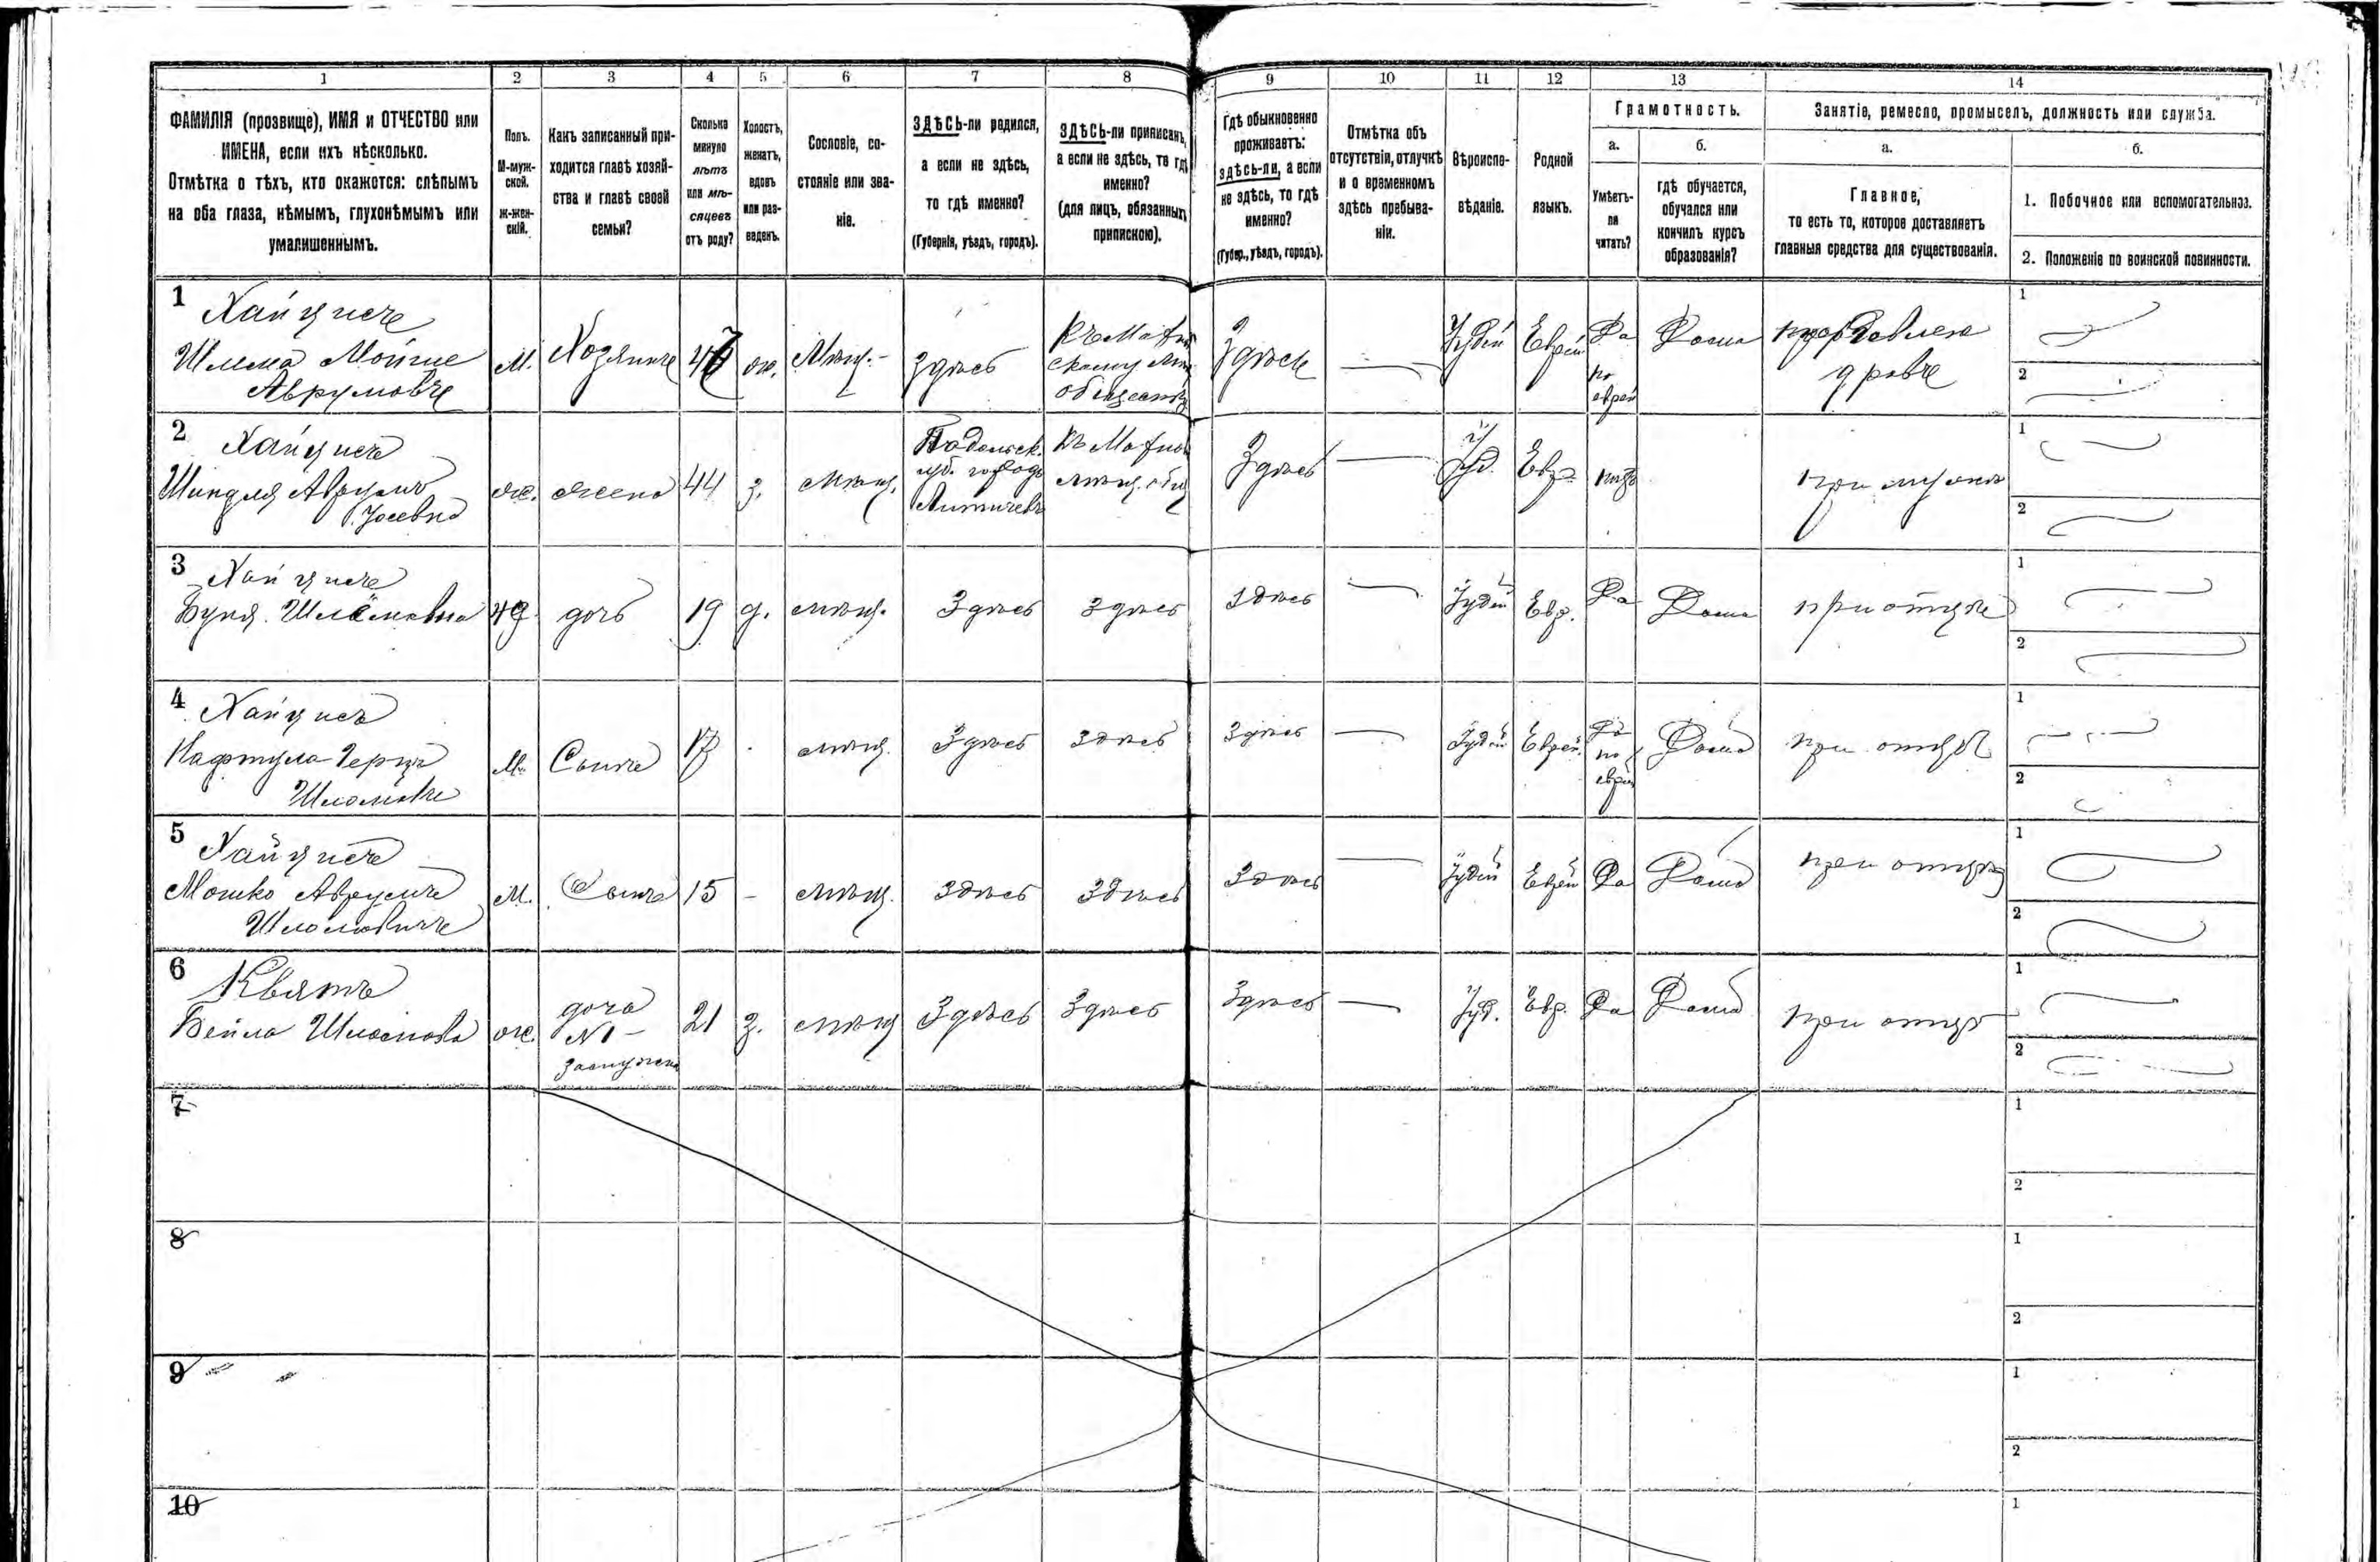 1 2 3 4 5 6 7 8 9 10 11 12 13 14
ФАМИЛІЯ (прозвище), ИМЯ и ОТЧЕСТВО или
ИМЕНА, если ихъ нѣсколько.
Отмѣтка о тѣхъ, кто окажется: слѣпымъ
на оба глаза, нѣмымъ, глухонѣмымъ или
умалишеннымъ.
Полъ.
М-муж-
ской.
ж-жен-
скій.
Какъ записанный при-
ходится главѣ хозяй-
ства и главѣ своей
семьи?
Сколько
минуло
лѣтъ
или мѣ-
сяцевъ
отъ роду?
Холостъ,
женатъ,
вдовъ
или раз-
веденъ.
Сословіе, со-
стояніе или зва-
ніе.
ЗДѢСЬ-ли родился,
а если не здѣсь,
то гдѣ именно?
(Губернія, уѣздъ, городъ).
ЗДѢСЬ-ли приписанъ,
а если не здѣсь, то гдѣ
именно?
(для лицъ, обязанныхъ
припискою).
Гдѣ обыкновенно
проживаетъ:
здѣсь-ли, а если
не здѣсь, то гдѣ
именно?
(Губер., уѣздъ, городъ).
Отмѣтка объ
отсутствіи, отлучкѣ
и о временномъ
здѣсь пребыва-
ніи.
Вѣроиспо-
вѣданіе.
Родной
языкъ.
Грамотность.
а.
Умѣетъ-
ли
читать?
б.
гдѣ обучается,
обучался или
кончилъ курсъ
образованія?
Занятіе, ремесло, промыселъ, должность или служба.
а.
Главное,
то есть то, которое доставляетъ
главныя средства для существованія.
б.
1. Побочное или вспомогательное.
2. Положеніе по воинской повинности.
1 Хайцисъ
Шлема Мойше
Аврумовъ
М. Хозяинъ 47 ж. Мѣщ. здѣсь
Здѣсь Іудей Еврей Да
по
еврей
Дома
дровъ
1
2
2 Хайцисъ
Шиндля Аврумъ
Іосевна
ж. жена 44 з. мѣщ.
Подольск.
губ. городъ
Литичевъ
Здѣсь Іуд. Евр. при мужѣ
1
2
3 Хайцисъ
Буня Шлёмовна
дочь 19 д. мѣщ. Здѣсь здѣсь здѣсь Іудей Евр. Да Дома при отцѣ
1
2
4 Хайцисъ
Нафтула Герцъ
Шломовъ
М. Сынъ 17 мѣщ. Здѣсь здѣсь здѣсь Іудей Еврей Да
по
еврей
Дома при отцѣ
1
2
5 Хайцисъ
Мошко Аврумъ
Шломовичъ
М. Сынъ 15 – мѣщ. здѣсь здѣсь здѣсь Іудей Еврей Да Дома при отцѣ
1
2
6 Квятъ
Бейла Шломова
ж. дочь
№1 –
замужем
21 з. мѣщ Здѣсь Здѣсь здѣсь Іуд. Евр. Да Дома при отцѣ
1
2
7
1
2
8
1
2
9
1
2
10
1